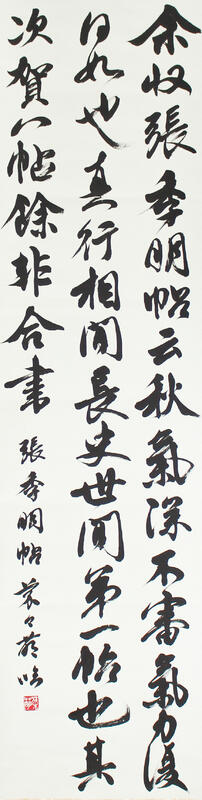 余收張季明帖云秋氣深不審氣力復
何如也真行相間長史世間第一帖也其
次賀八帖餘非合書 張季明帖 臨